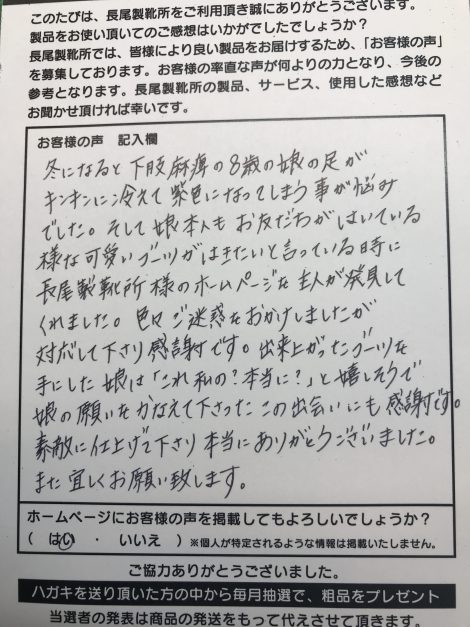 このたびは、長尾製靴所をご利用頂き誠にありがとうございます。
製品をお使い頂いてのご感想はいかがでしたでしょうか？
長尾製靴所では、皆様により良い製品をお届けするため、「お客様の声」
を募集しております。お客様の率直な声が何よりの力となり、今後の
参考となります。長尾製靴所の製品、サービス、使用した感想など
お聞かせ頂ければ幸いです。
お客様の声　記入欄
冬になると下肢麻痺の8歳の娘の足が
キンキンに冷えて紫色になってしまう事が悩み
でした。そして娘本人もお友だちがはいている
様な可愛いブーツがはきたいと言っている時に
長尾製靴所様のホームページを主人が発見して
くれました。色々ご迷惑をおかけしましたが
対応して下さり感謝です。出来上がったブーツを
手にした娘は「これ私の？本当に？」と嬉しそうで
娘の願いをかなえて下さったこの出会いにも感謝です。
素敵に仕上げて下さり本当にありがとうございました。
また宜しくお願い致します。
ホームページにお客様の声を掲載してもよろしいでしょうか？
（　はい　・　いいえ　）※個人が特定されるような情報は掲載いたしません。
ご協力ありがとうございました。
ハガキを送り頂いた方の中から毎月抽選で、粗品をプレゼント
当選者の発表は商品の発送をもって代えさせて頂きます。